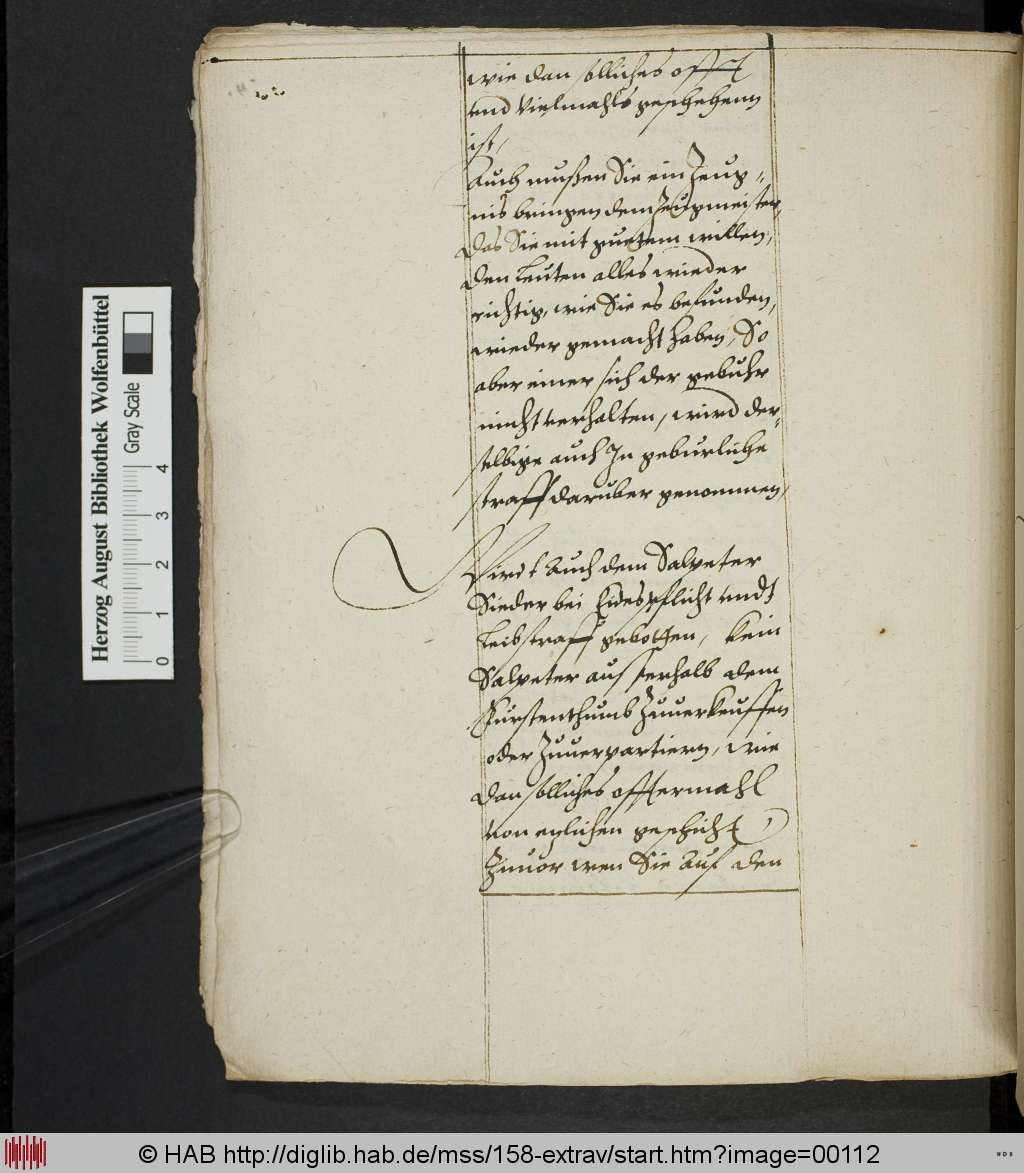 wie dan solliches offt
vnd Vielmahls geschehenn
ist,
Auch mußen Sie ein Zeug-
nis bringen dem Zeugmeister,
das Sie mit guetem willen,
den Leuten alles wieder
richtig, wie Sie es befunden,
wieder gemacht haben, So
aber einer sich der gebuhr
nicht verhalten, wird der-
selbige auch In geburliche
straff daruber genommen,
Wirdt Auch dem Salpeter
Sieder bei Eidespflicht vndt
Leibstraff gebotten, kein
Salpeter ausserhalb dem
Furstenthumb Zuuerkeuffen
oder Zuuerpartiern, wie
dan solliches offtermahl
von etzlichen geschicht,
Zuuor wen Sie Auf den
Herzog August Bibliothek Wolfenbüttel
Gray Scale
0 1 2 3 4
© HAB http://diglib.hab.de/mss/158-extrav/start.htm?image=00112